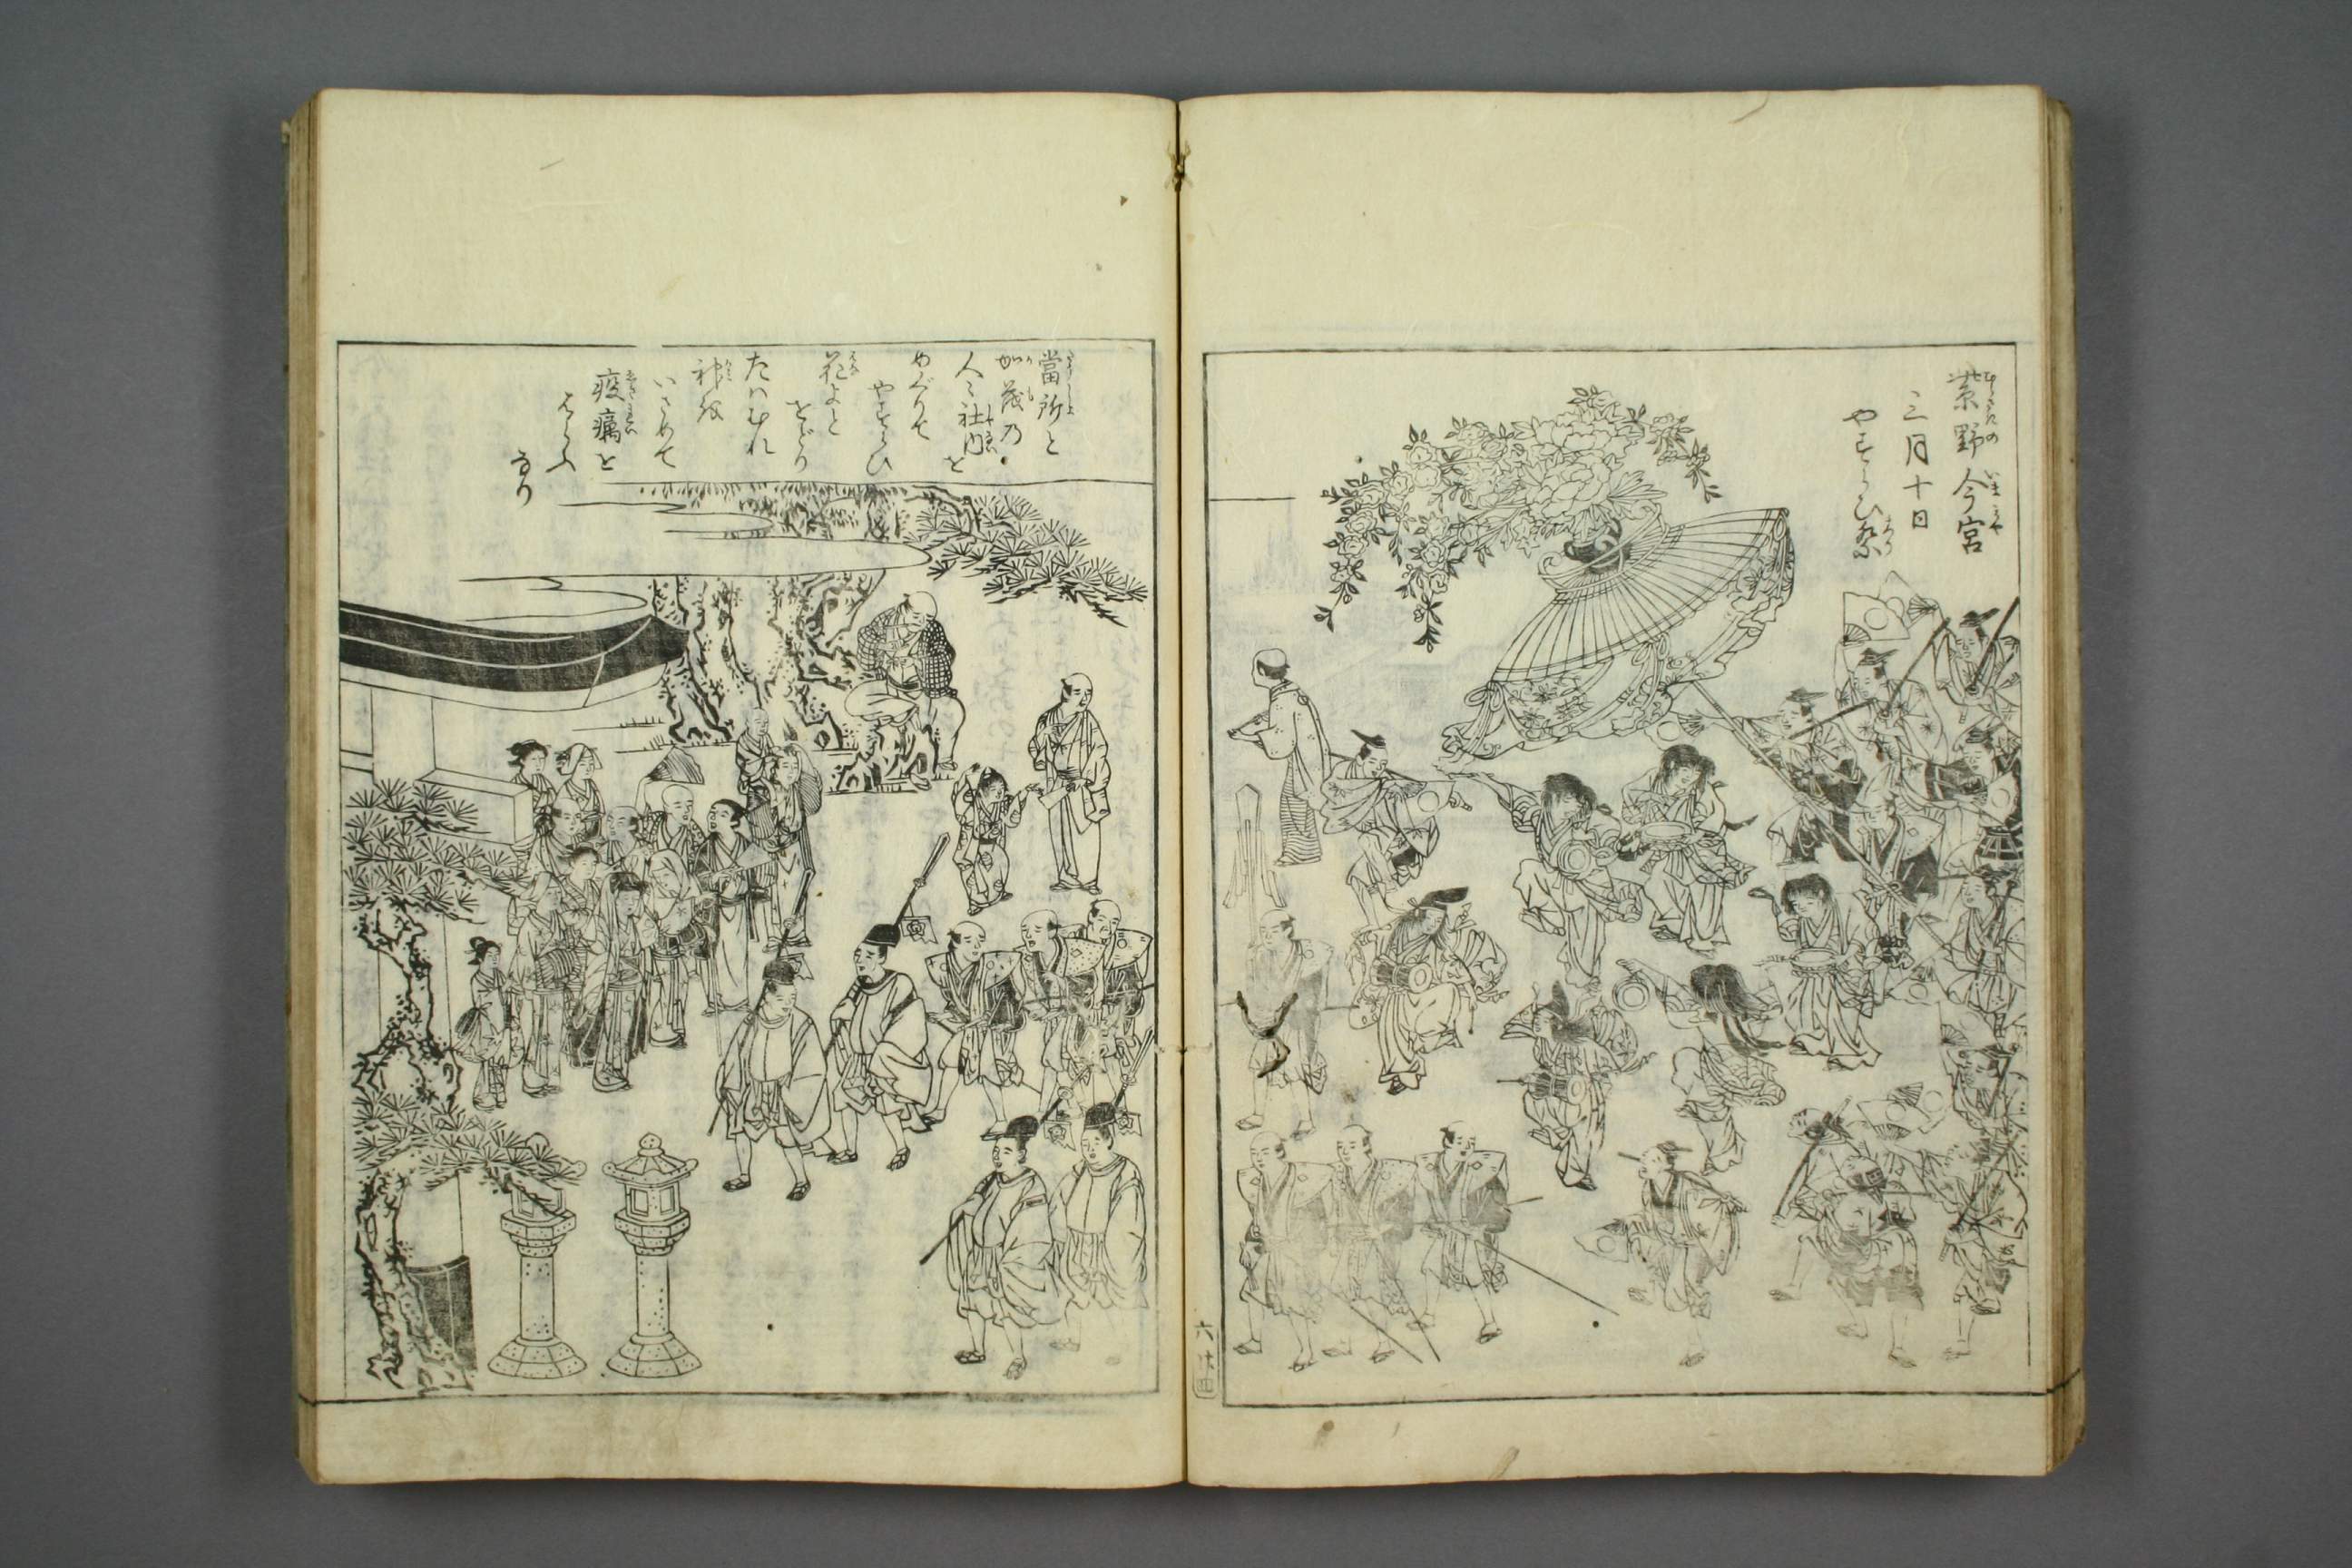 紫野今宮
三月十日
やすらひ祭
當所と
加茂乃
人々社内を
めぐりて
やすらひ
花よと
をどり
たはむれ
神紋
いさめて
疫癘を
はらふ
なり
六